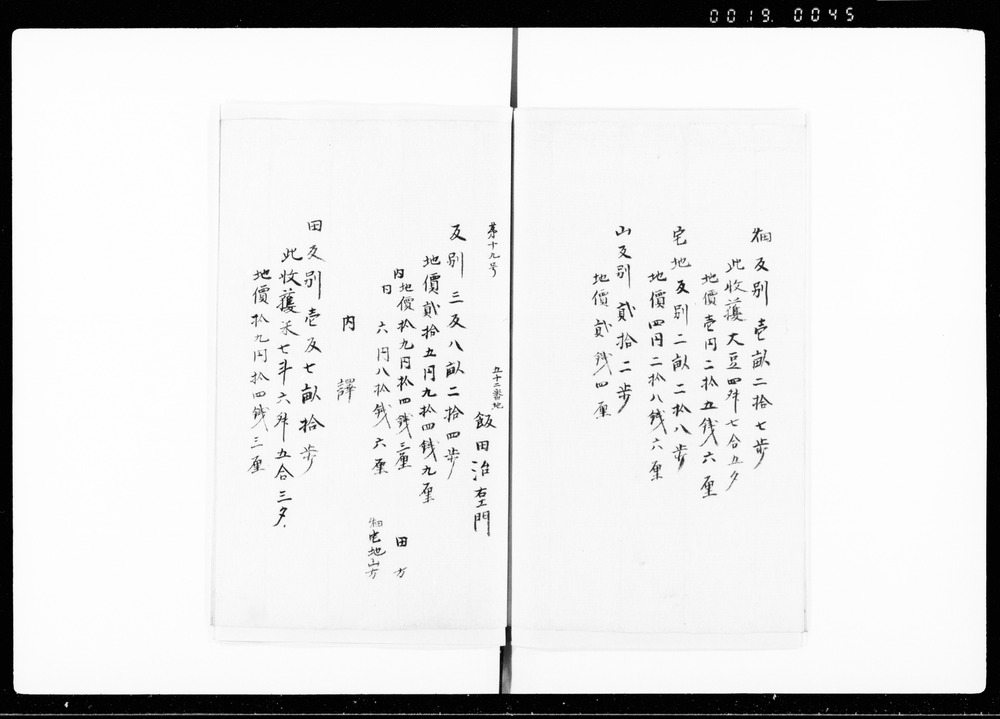 0019 0045
畑反別壱畝二拾七歩
此收穫大豆四舛七合五夕
地價壱円二拾五銭六厘
宅地反別二畝二拾八歩
地價四円二拾八銭六厘
山反別貳拾二歩
地價貳銭四厘
第十九号
五十二番地
飯田治左エ門
反別三反八畝二拾四歩
地價貳拾五円九拾四銭九厘
内地價拾九円拾四銭三厘 田方
日六円八拾銭六厘 畑宅地山方
内譯
田反別壱反七畝拾歩
此收獲米七斗六舛五合三夕
地價拾九円拾四銭三厘